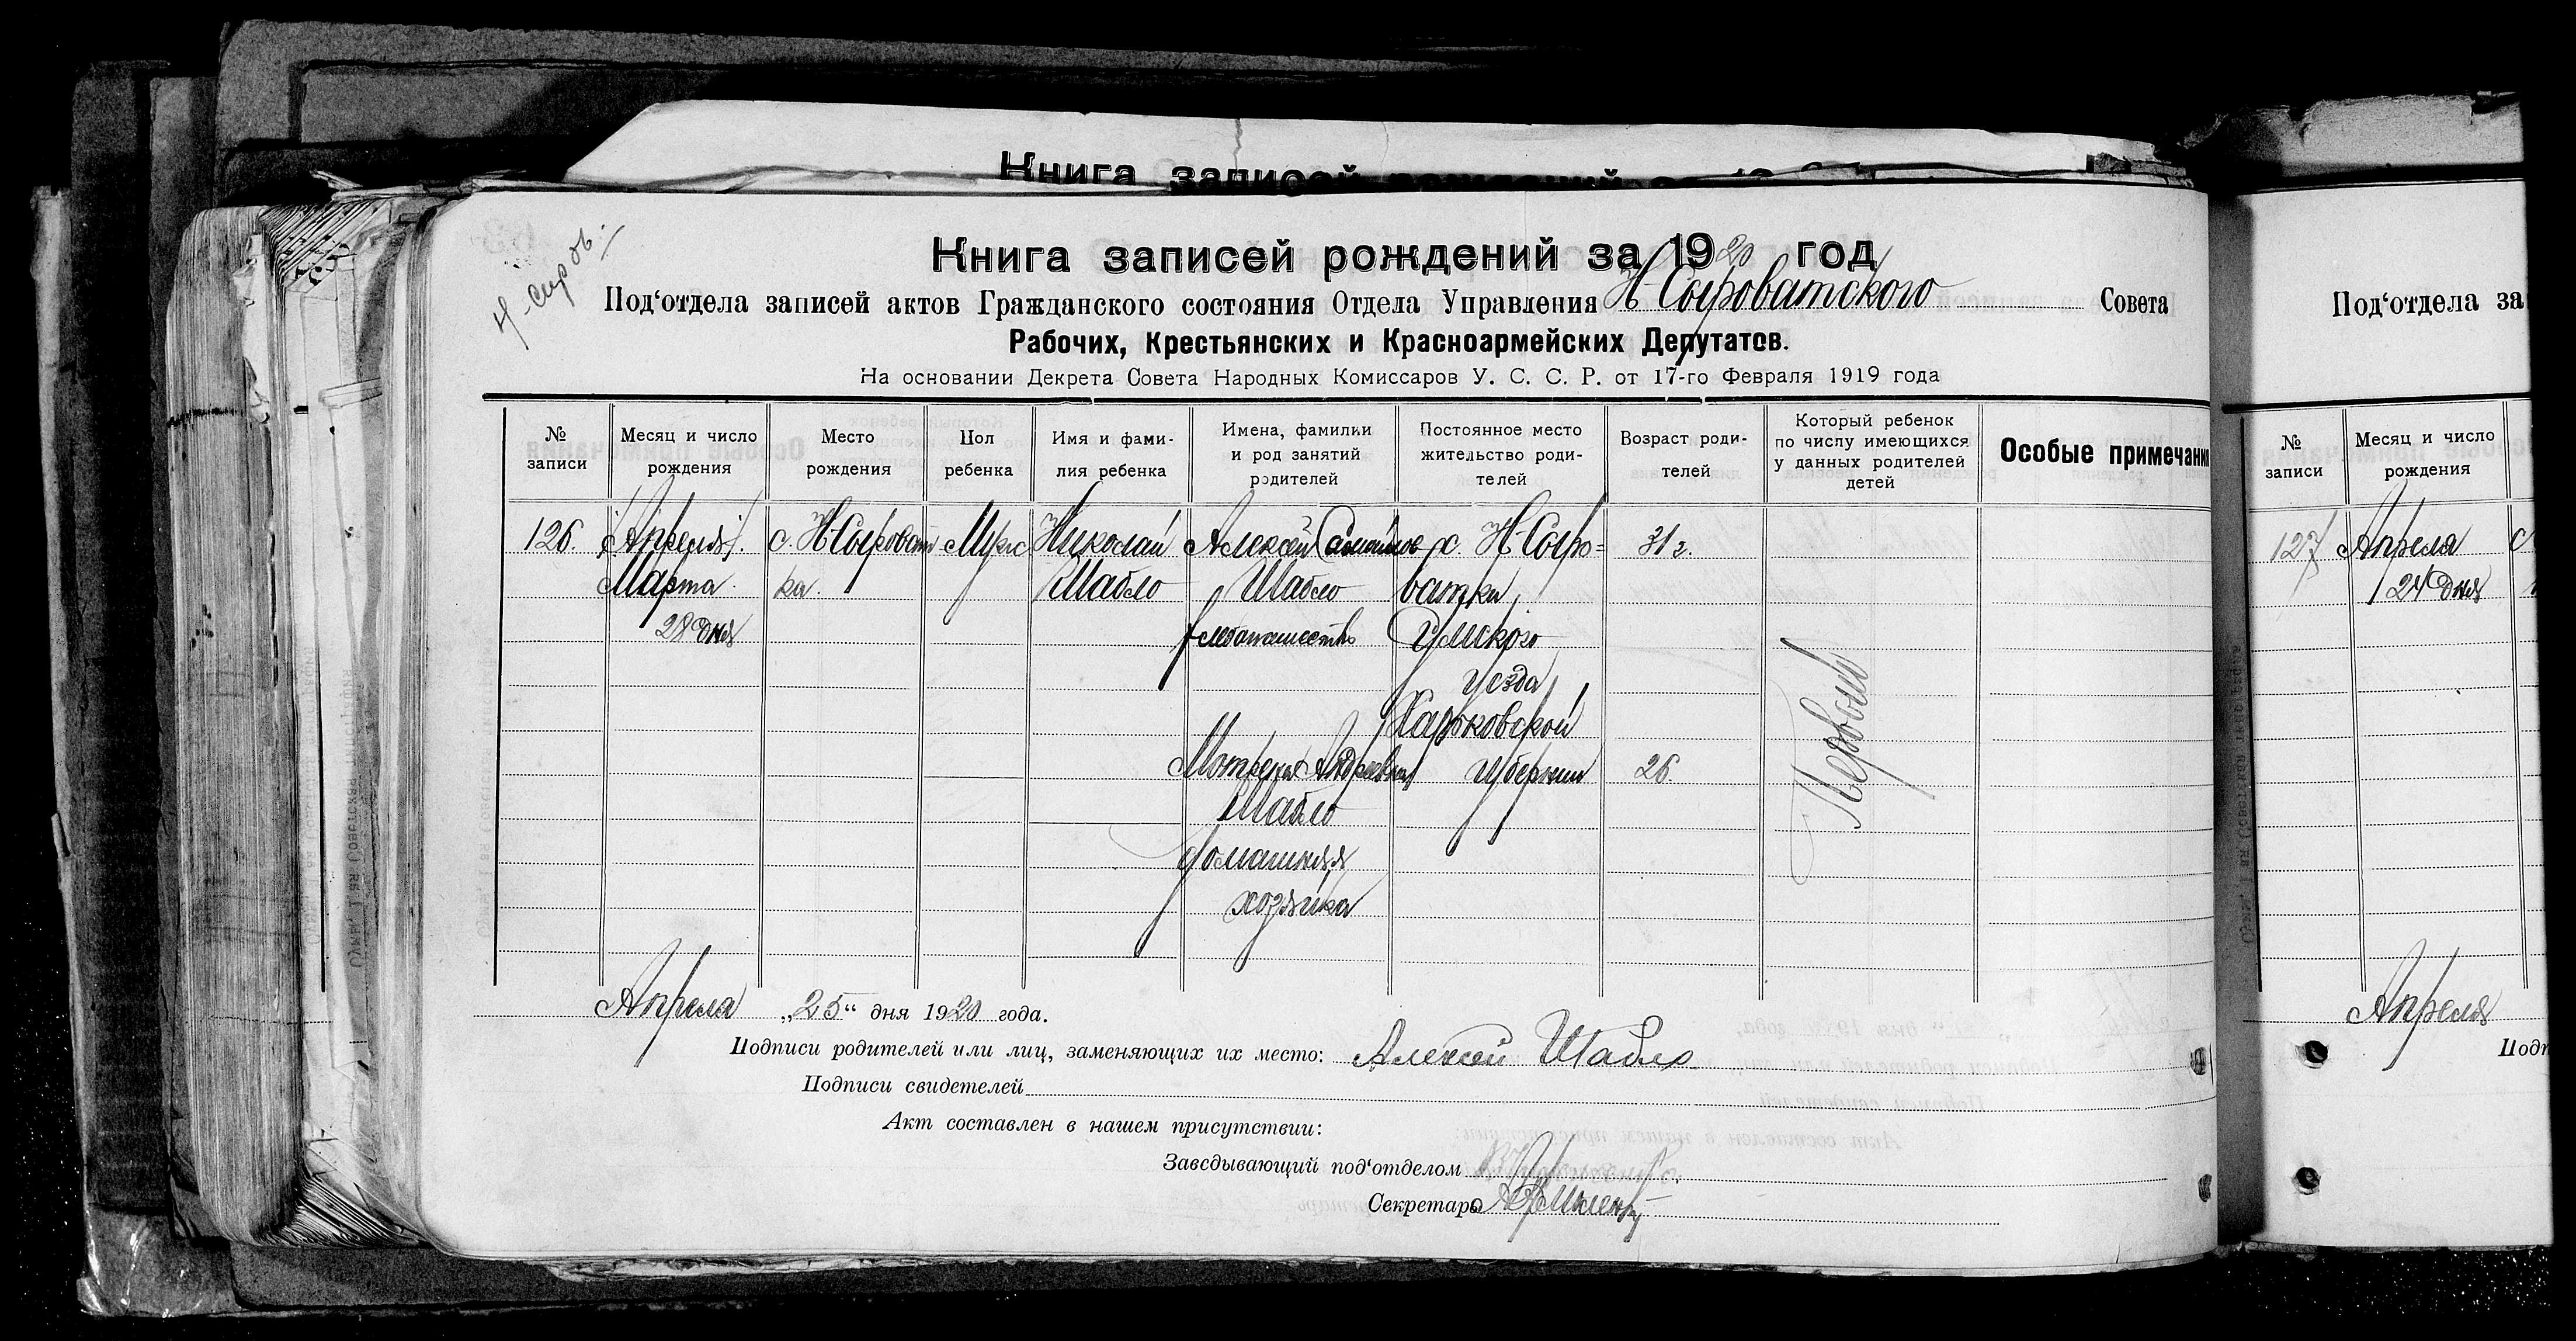 Книга записей рождений за 19
Н-Сыров.
Книга записей рождений за 1920 год
Под‘отдела записей актов Гражданского состояния Отдела Управления Н-Сыроватского Совета
Рабочих, Крестьянских и Красноармейских Депутатов.
На основании Декрета Совета Народных Комиссаров У. С. С. Р. от 17-го Февраля 1919 года
№ записи
Месяц и число рождения
Место рождения
Пол ребенка
Имя и фами-
лия ребенка
Имена, фамильи
и род занятий
родителей
Постоянное место
жительство роди-
телей
Возраст роди-
телей
Который ребенок
по числу имеющихся
у данных родителей
детей
Особые примечани
126.
(Апреля).
Марта
28 дня
с. Н-Сыроват
ка.
Муж
Николай
Шабло
Алексей Самойлов
Шабло
хлебопашество
Мотрена Андреевна
Шабло
домашняя
хозяйка
с. Н-Сыро=
ватки
Сумского
уезда
Харьковской
губернии
31 г.
26
Первый
Апреля „25“ дня 1920 года.
Подписи родителей или лиц, заменяющих их место: Алексей Шабло
Подписи свидетелей
Акт составлен в нашем присутствии:
Заведывающий под‘отделом
Секретарь
Под‘отдела за
№ записи
Месяц и число
рождения
127
Апреля
24 дня
Апреля
Подп